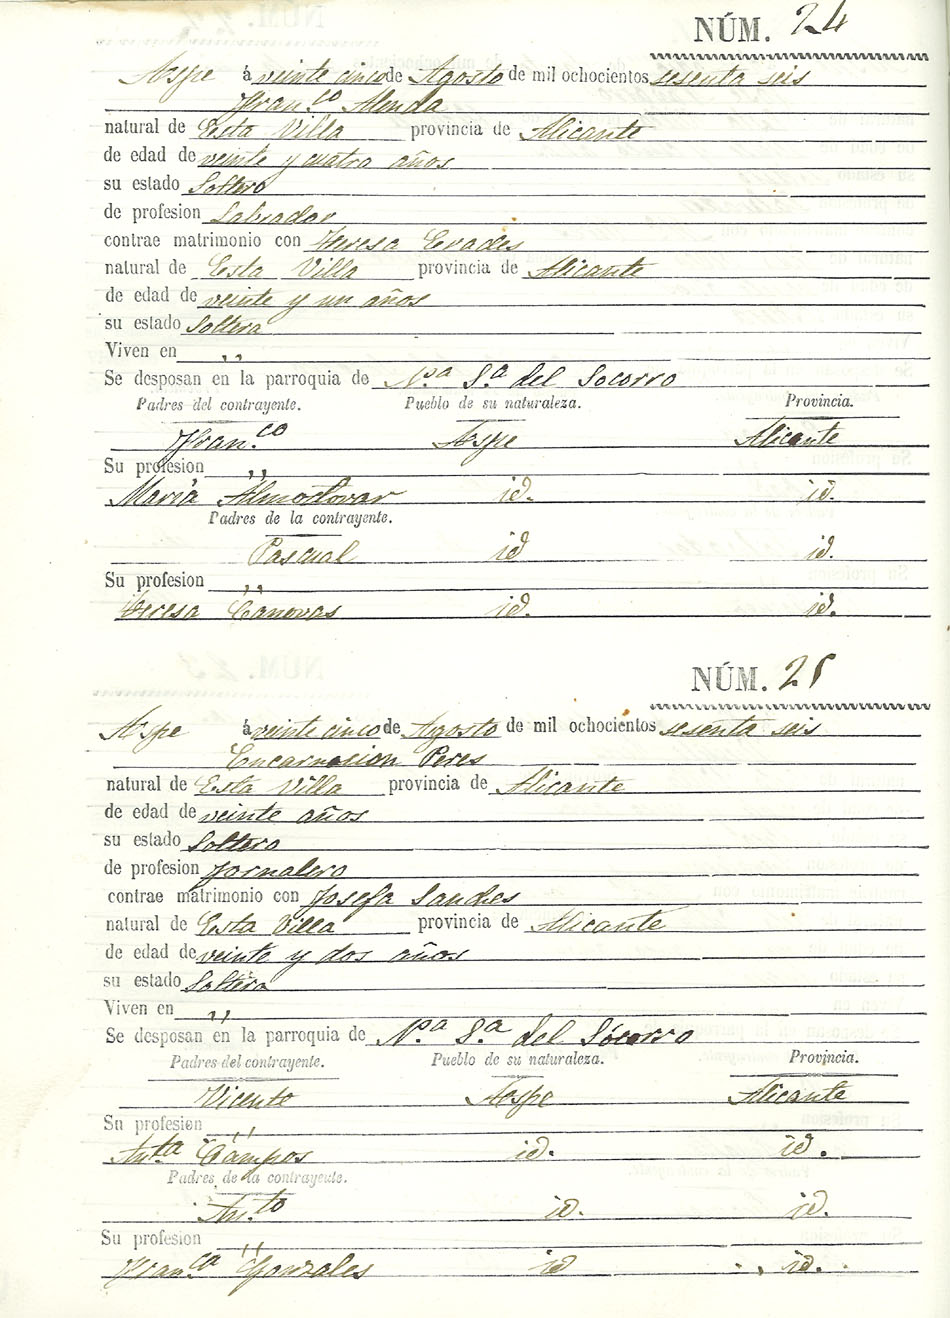 NÚM. 24
Aspe á veinte cinco de Agosto de mil ochocientos sesenta seis
Fran.co Alenda
natural de Esta Villa provincia de Alicante
de edad de veinte y cuatro años
su estado Soltero
de profesion Labrador
contrae matrimonio con Teresa Erades
natural de Esta Villa provincia de Alicante
de edad de veinte y un años
su estado Soltera
Viven en ,,
Se desposan en la parroquia de N.a S.a del Socorro
Padres del contrayente. Pueblo de su naturaleza. Provincia.
Fran.co Aspe Alicante
Su profesion ,,
Maria Almodovar id. id.
Padres de la contrayente.
Pascual id id.
Su profesion ,,
Teresa Canovas id. id.
NÚM. 25
Aspe á veinte cinco de Agosto de mil ochocientos sesenta seis
Encarnacion Peres
natural de Esta Villa provincia de Alicante
de edad de veinte años
su estado Soltero
de profesion Jornalero
contrae matrimonio con Josefa
natural de Esta Villa provincia de Alicante
de edad de veinte y dos años
su estado Soltera
Viven en ,,
Se desposan en la parroquia de N.a S.a del Socorro
Padres del contrayente. Pueblo de su naturaleza. Provincia.
Vicente Aspe Alicante
Su profesion ,,
Ant.a Campos id. id.
Padres de la contrayente.
Ant.to id. id.
Su profesion ,,
Fran.ca Gonzales id id.